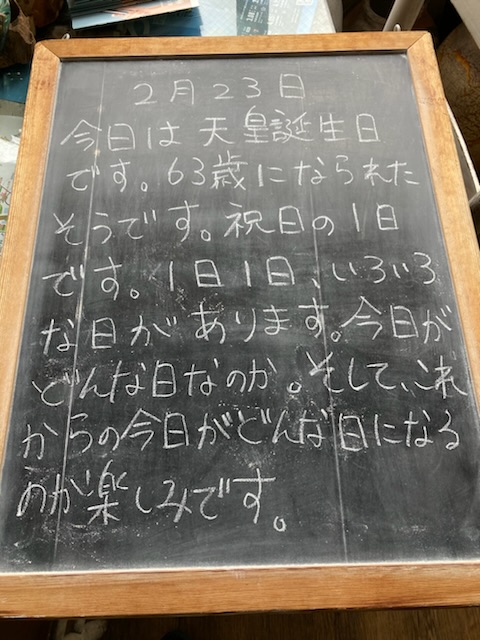 2月23日
今日は天皇誕生日
です。63歳になられた
そうです。祝日の1日
です。1日1日、いろいろ
な日があります。今日が
どんな日なのか。そして、これ
からの今日がどんな日になる
のか楽しみです。